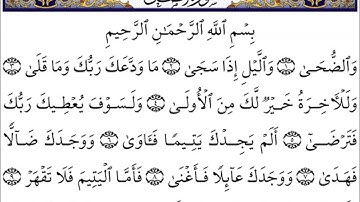 بِسْمِ ٱللَّهِ ٱلرَّحْمَـٰنِ ٱلرَّحِيمِ
وَٱلضُّحَىٰ ١ وَٱلَّيْلِ إِذَا سَجَىٰ ٢ مَا وَدَّعَكَ رَبُّكَ وَمَا قَلَىٰ ٣
وَلَلْأَخِرَةُ خَيْرٌ لَّكَ مِنَ ٱلْأُولَىٰ ٤ وَلَسَوْفَ يُعْطِيكَ رَبُّكَ
فَتَرْضَىٰ ٥ أَلَمْ يَجِدْكَ يَتِيمًا فَـَٔاوَىٰ ٦ وَوَجَدَكَ ضَآلًّا
فَهَدَىٰ ٧ وَوَجَدَكَ عَآئِلًا فَأَغْنَىٰ ٨ فَأَمَّا ٱلْيَتِيمَ فَلَا تَقْهَرْ ٩